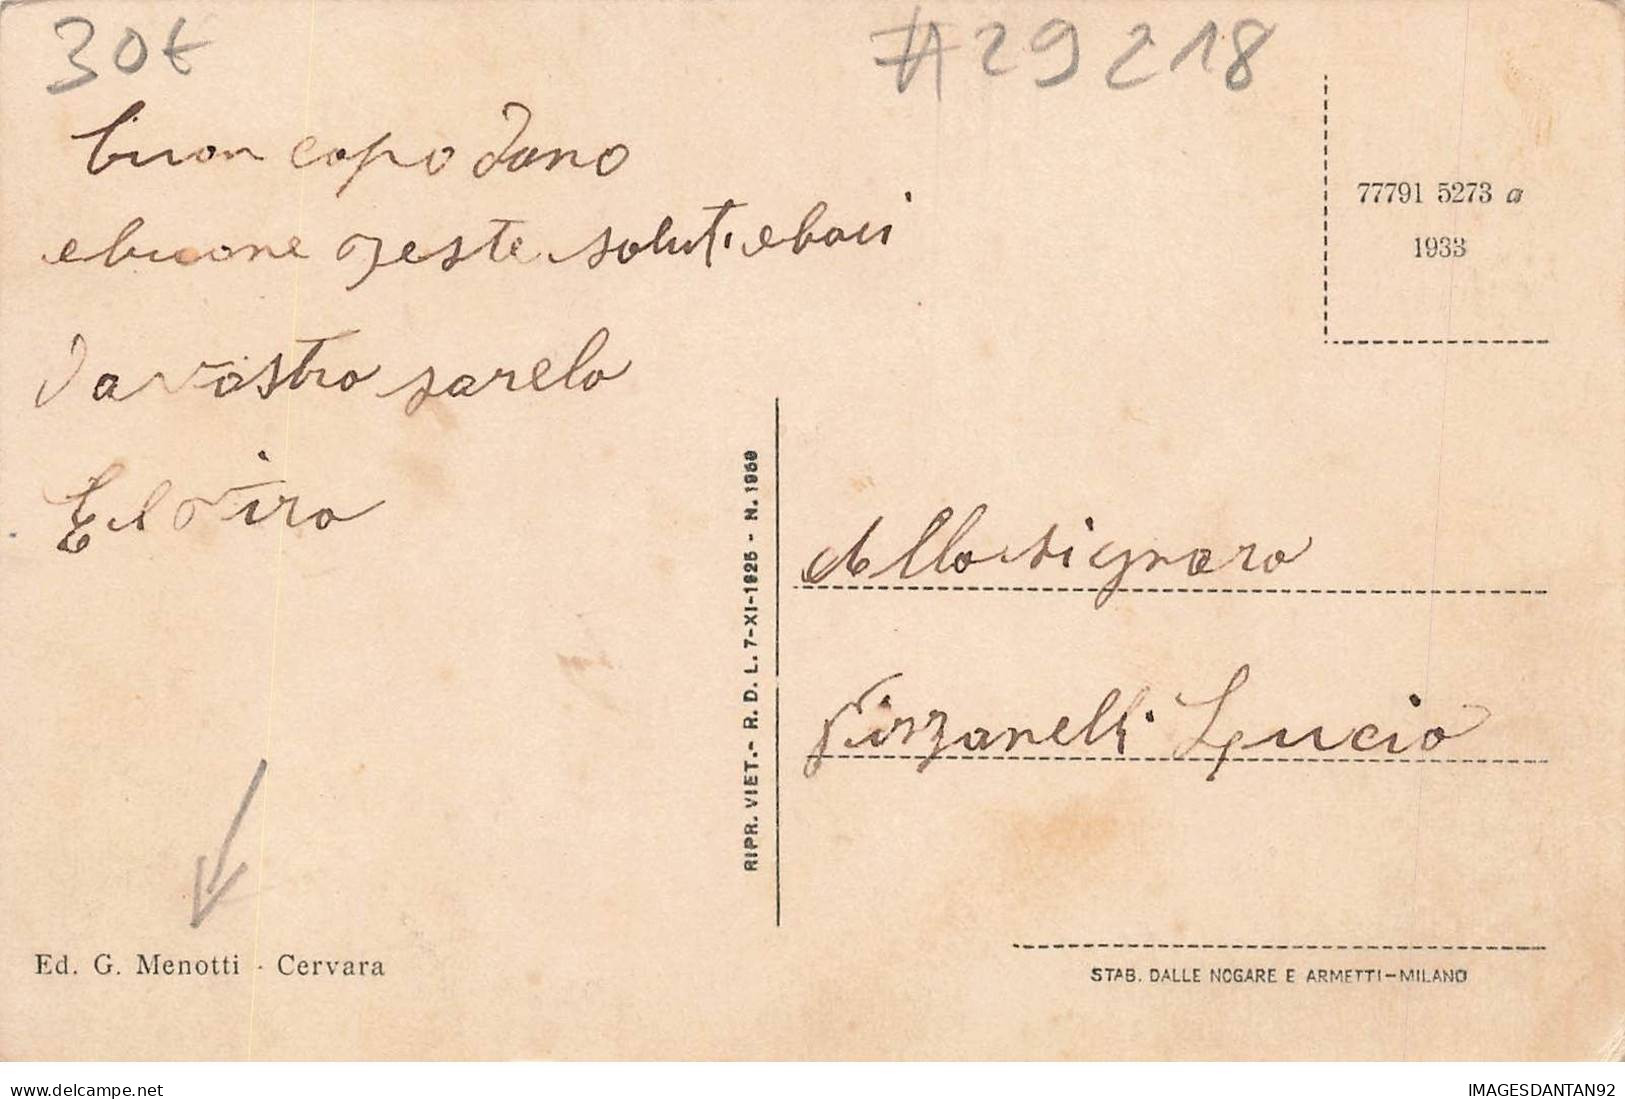 30€
#29218
buon capo dano
ebuone feste saluti ebaci
da vostro sarela
Elvira
77791 5273 a
1933
RIPR. VIET. - R. D. L. 7-XI-1925 - N. 1950
Alla signora
Pizzanelli Lucia
Ed. G. Menotti - Cervara
STAB. DALLE NOGARE E ARMETTI-MILANO
www.delcampe.net
IMAGESDANTAN92